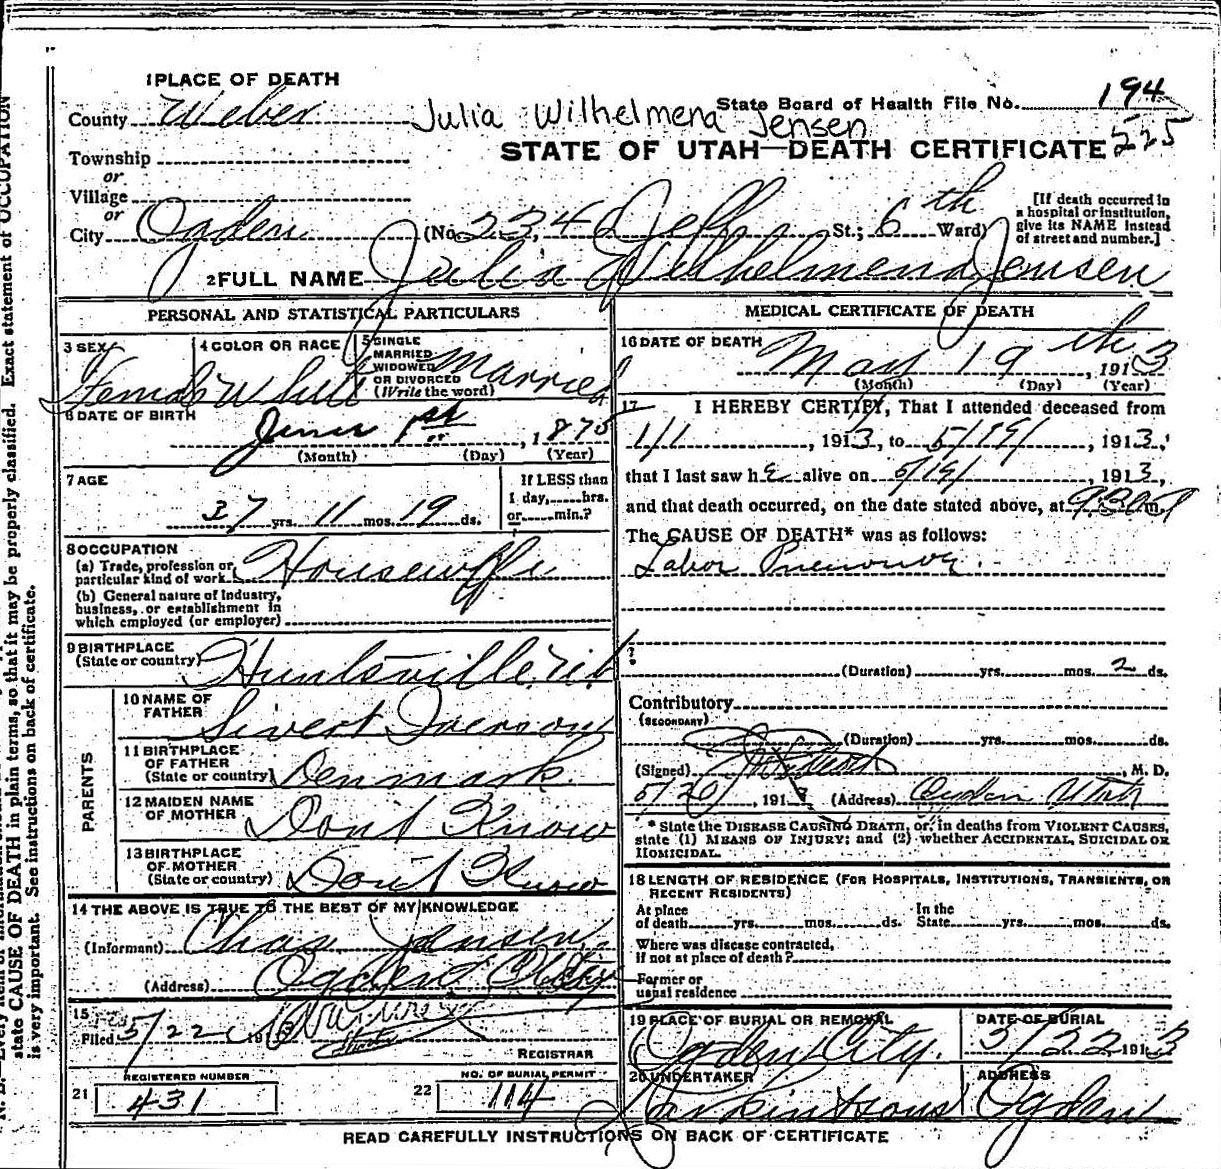 1 PLACE OF DEATH
State Board of Health File No. 194
County Weber
Julia Wilhelmena Jensen
525
STATE OF UTAH—DEATH CERTIFICATE
Township
or
Village
or
City Ogden (No. 2234 Jeffn St.; 6th Ward)
[If death occurred in
a hospital or institution,
give its NAME instead
of street and number.]
2 FULL NAME Julia Wilhelmena Jensen
PERSONAL AND STATISTICAL PARTICULARS
3 SEX Female
4 COLOR OR RACE White
5 SINGLE
MARRIED
WIDOWED
OR DIVORCED
(Write the word)
Married
6 DATE OF BIRTH
June 1st, 1875
(Month) (Day) (Year)
7 AGE
37 yrs. 11 mos. 19 ds.
If LESS than
1 day, hrs.
or min.?
8 OCCUPATION
(a) Trade, profession or
particular kind of work Housewife
(b) General nature of industry,
business, or establishment in
which employed (or employer)
9 BIRTHPLACE
(State or country) Huntsville, Ut
PARENTS
10 NAME OF
FATHER Sivert
11 BIRTHPLACE
OF FATHER
(State or country) Denmark
12 MAIDEN NAME
OF MOTHER Dont Know
13 BIRTHPLACE
OF MOTHER
(State or country) Dont Know
14 THE ABOVE IS TRUE TO THE BEST OF MY KNOWLEDGE
(Informant) Chas Jensen
(Address) Ogden
15
Filed 5/22 191
REGISTRAR
21 REGISTERED NUMBER
431
22 NO. OF BURIAL PERMIT
114
MEDICAL CERTIFICATE OF DEATH
16 DATE OF DEATH
May 19th, 1913
(Month) (Day) (Year)
17 I HEREBY CERTIFY, That I attended deceased from
1/1, 1913, to 5/19/, 1913,
that I last saw he alive on 5/19/, 1913,
and that death occurred, on the date stated above, at 9:30 P m.
The CAUSE OF DEATH* was as follows:
Lobar Pneumonia.
(Duration) yrs. mos. 2 ds.
Contributory
(SECONDARY)
(Duration) yrs. mos. ds.
(Signed) , M. D.
5/20/, 1913 (Address) Ogden Utah
* State the DISEASE CAUSING DEATH, or, in deaths from VIOLENT CAUSES,
state (1) MEANS OF INJURY; and (2) whether ACCIDENTAL, SUICIDAL OR
HOMICIDAL.
18 LENGTH OF RESIDENCE (FOR HOSPITALS, INSTITUTIONS, TRANSIENTS, OR
RECENT RESIDENTS)
At place
of death yrs. mos. ds.
In the
State yrs. mos. ds.
Where was disease contracted,
if not at place of death?
Former or
usual residence
19 PLACE OF BURIAL OR REMOVAL
Ogden City.
DATE OF BURIAL
5/22 1913
20 UNDERTAKER
ADDRESS
Ogden
READ CAREFULLY INSTRUCTIONS ON BACK OF CERTIFICATE
state CAUSE OF DEATH in plain terms, so that it may be properly classified. Exact statement of OCCUPATION
is very important. See instructions on back of certificate.